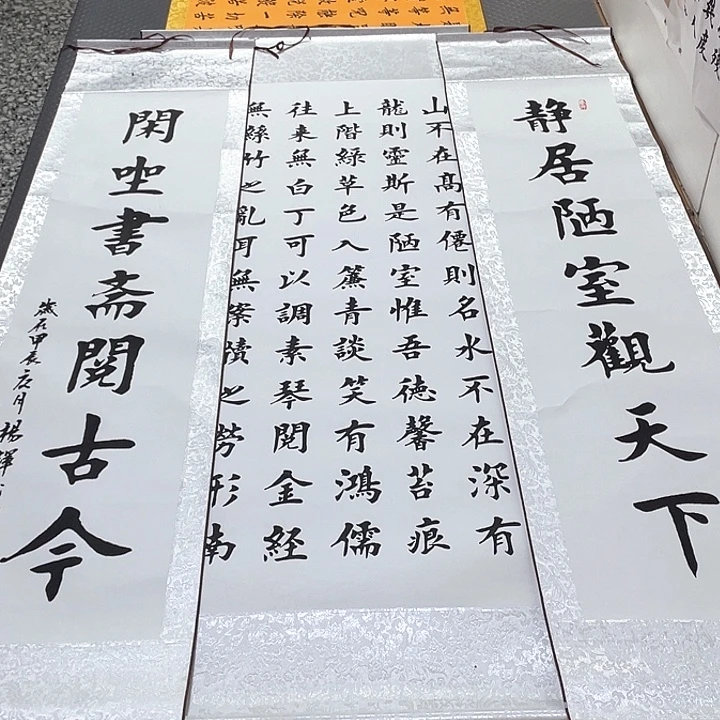 静居陋室觀天下
山不在髙有僊則名水不在深有
龍則靈斯是陋室惟吾德馨苔痕
上階緑草色入簾青談笑有鴻儒
往来無白丁可以調素琴閲金経
無絲竹之亂耳無案牘之勞形南
閑坐書斎閲古今
歲在甲辰月楊輝